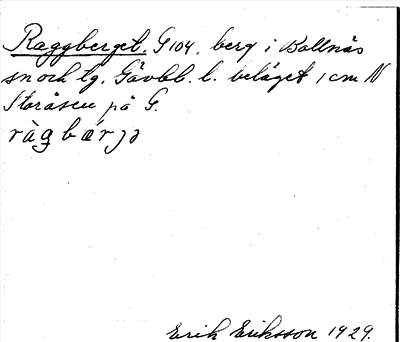 Raggberget. G 104. berg i Bollnäs
sn och tg. Gävbl. l. beläget 1 cm N
Storåsen på G.
ràg bærjə
Erik Eriksson 1929.